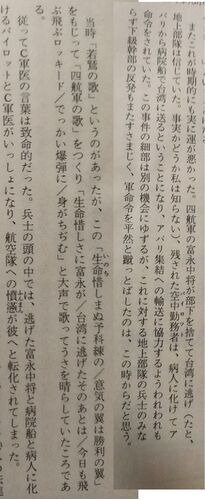 またこれが時期的にも実に運が悪かった。四航軍の富永中将が部下を捨てて台湾に逃げたと、
地上部隊は信じていた。事実かどうか私は知らない、残された空中勤務者は、病人に化けてア
パリから病院船で台湾に送るということになり、アパリ集結への輸送に協力するようわれわれも
命令をされていた。この事件の細部は別の機会にゆずるが、これに対する地上部隊の兵士のみな
らず下級幹部の反発もまたすさまじく、軍命令を平然と蹴っとばしたのは、この時からだと思う。
当時「若鷲の歌」というのがあったが、この「生命惜しまぬ予科練の/意気の翼は勝利の翼」
をもじって「四航軍の歌」をつくり「生命惜しさに富永が/台湾に逃げたそのあとは/今日も飛
ぶ飛ぶロッキード/でっかい爆弾に/身がちぢむ」と大声で歌ってうさを晴らしていたころであ
従ってC軍医の言葉は致命的だった。兵士の頭の中では、逃げた富永中将と病院船と病人に化
けるパイロットとC軍医がいっしょになり、航空隊への憤懣が彼へと転化されてしまった。